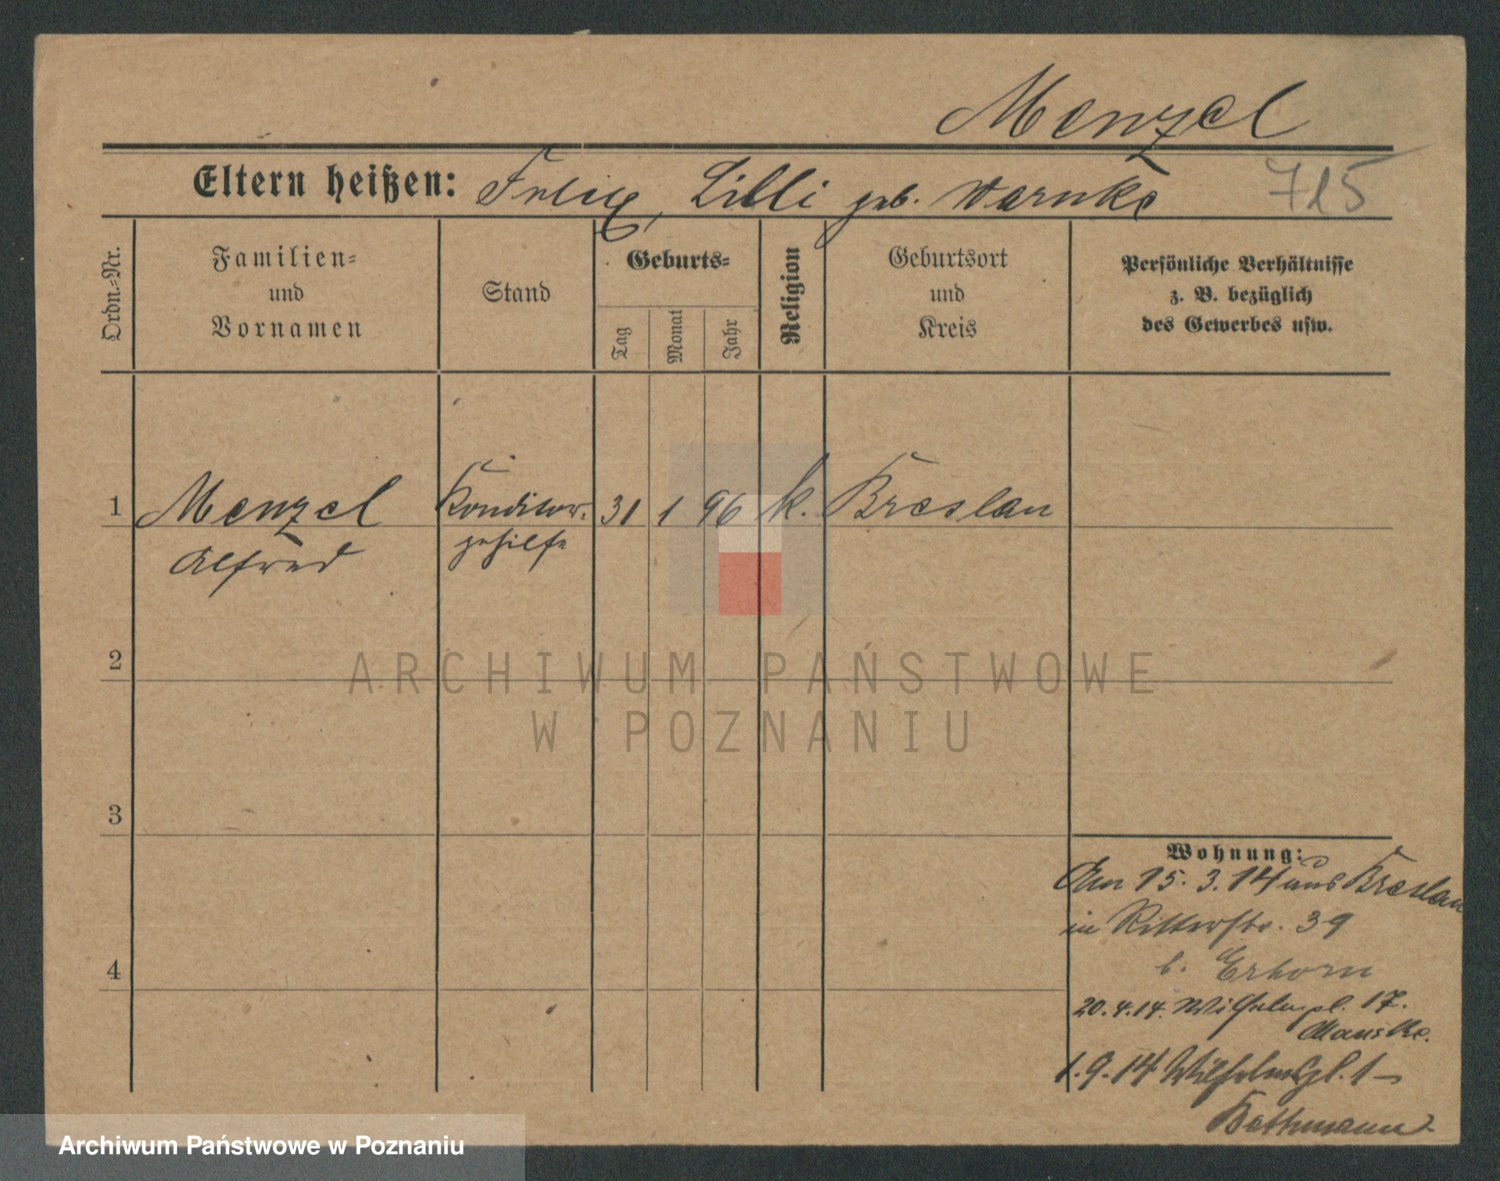 Menzel
Eltern heißen: Felix, Lilli geb. Warnke 715
Ordn.-Nr.
Familien-
und
Vornamen
Stand
Geburts-
Tag
Monat
Jahr
Religion
Geburtsort
und
Kreis
Persönliche Verhältnisse
z. B. bezüglich
des Gewerbes usw.
1 Menzel Konditor- 31 1 96 k. Breslau
Alfred gehilfe
2
ARCHIWUM PAŃSTWOWE
W POZNANIU
3
Wohnung:
Am 15. 3. 14 aus Breslau
in Ritterstr. 39
b. Erhorn
4
20.4.14. Wilhelmpl. 17.
1.9.14 Wilhelmspl. 1
Bethmann
Archiwum Państwowe w Poznaniu